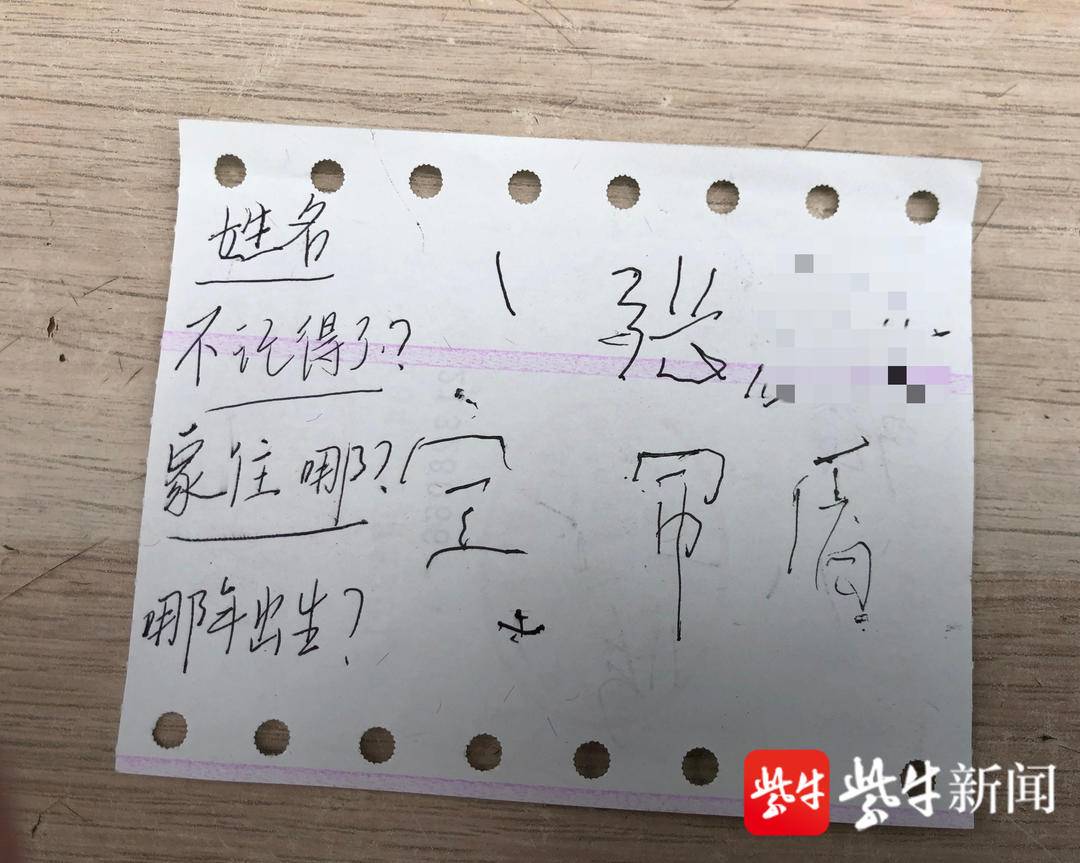 姓名
张
不记得了?
家住哪?
哪年出生?
紫牛 紫牛新闻